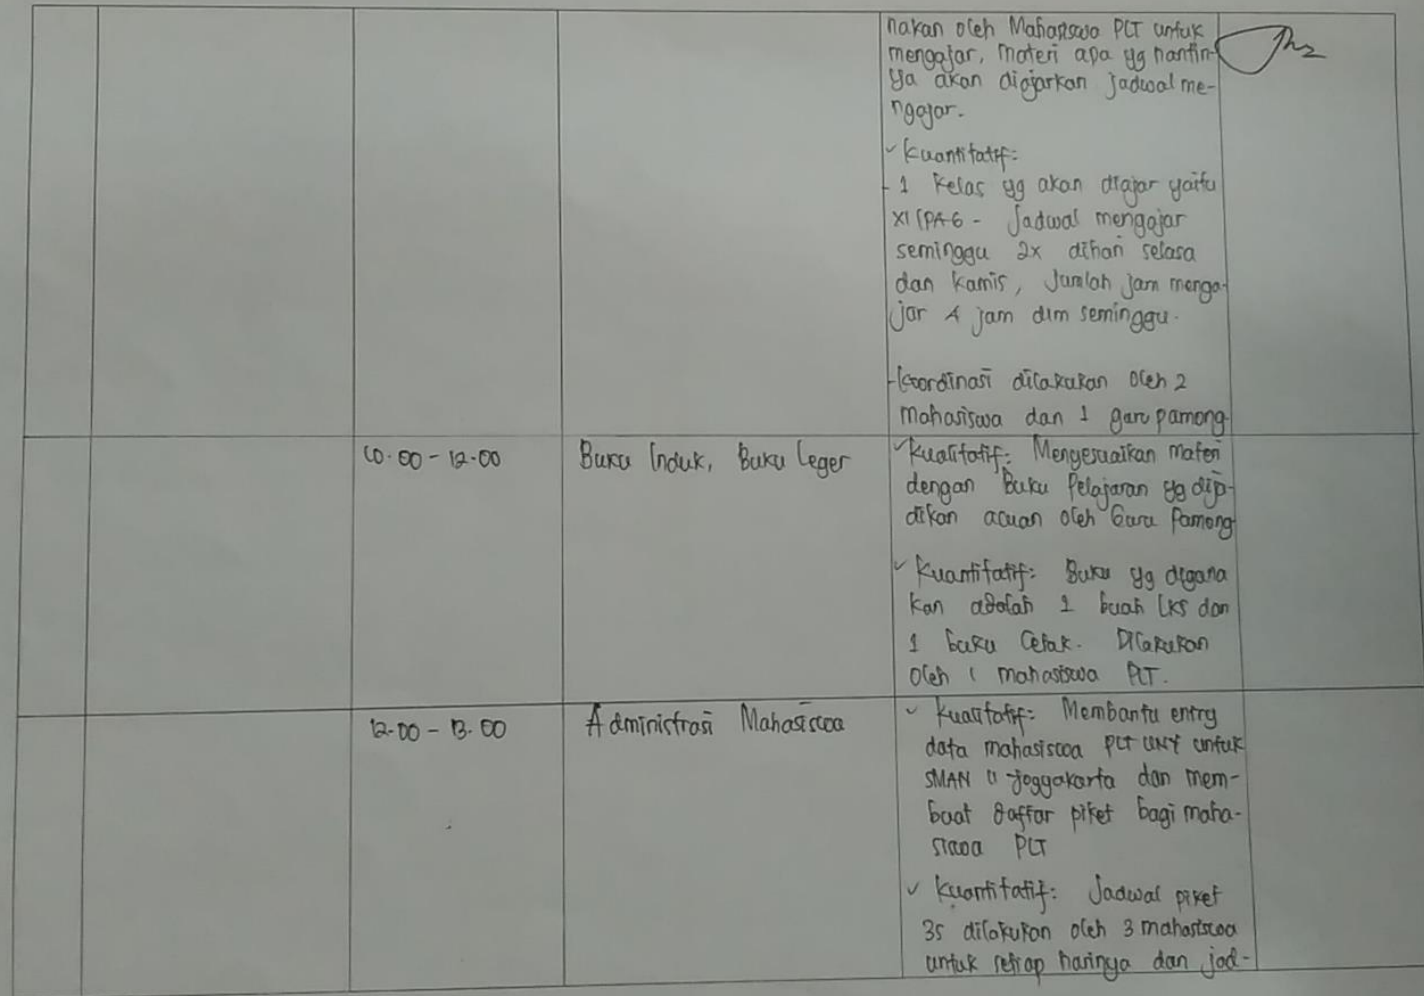 nakan oleh Mahasiswa PLT untuk
mengajar, materi apa yg nantin-
ya akan diajarkan jadwal me-
ngajar.
✓ Kuantitatif:
- 1 Kelas yg akan diajar yaitu
XI IPA 6 - Jadwal mengajar
seminggu 2x dihari selasa
dan kamis, Jumlah jam menga-
jar 4 jam dlm seminggu.
- Koordinasi dilakukan oleh 2
mahasiswa dan 1 guru pamong
10.00 - 12.00
Buku Induk, Buku Leger
✓ Kualitatif: Menyesuaikan materi
dengan Buku Pelajaran yg dija-
dikan acuan oleh Guru Pamong
✓ Kuantitatif: Buku yg diguna
kan adalah 1 buah LKS dan
1 buku Cetak. Dilakukan
oleh 1 mahasiswa PLT.
12.00 - 13.00
Administrasi Mahasiswa
✓ Kualitatif: Membantu entry
data mahasiswa PLT UNY untuk
SMAN 11 Yogyakarta dan mem-
buat daftar piket bagi maha-
siswa PLT
✓ Kuantitatif: Jadwal piket
3s dilakukan oleh 3 mahasiswa
untuk setiap harinya dan jad-